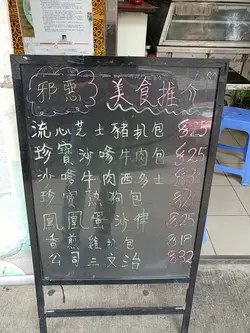 邪惡 美食推介
流心芝士豬扒包 $25
珍寶沙嗲牛肉包 $25
沙嗲牛肉西多士
珍寶熱狗包
鳳凰蛋沙律 $25
香煎雞扒包 $18
公司三文治 $32